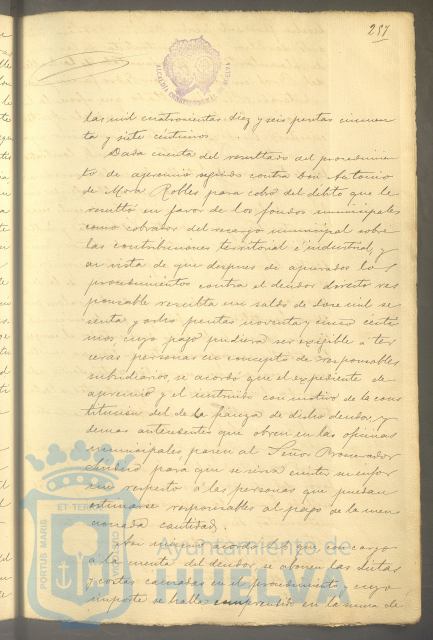 257
ALCALDIA CONSTITUCIONAL HUELVA
las mil cuatrocientas diez y seis pesetas cincuen
ta y siete céntimos.
Dada cuenta del resultado del procedimien
to de apremio seguido contra Don Antonio
de Mora Robles para cobro del debito que le
resultó en favor de los fondos municipales
como cobrador del recargo municipal sobre
las contribuciones territorial é industrial, y
en vista de que despues de apurados los
procedimientos contra el deudor directo res
ponsable resulta un saldo de doce mil se
senta y ocho pesetas noventa y cinco cénti
mos cuyo pago pudiera ser exigible á ter
ceras personas en concepto de responsables
subsidiarios, se acordó que el expediente de
apremio y el instruido con motivo de la cons
titucion del de la fianza de dicho deudor y
demas antecedentes que obren en las oficinas
municipales pasen al Señor Procurador
Síndico para que se sirva emitir su infor
me respecto á las personas que puedan
estimarse responsables al pago de la men
cionada cantidad.
acordó que con cargo
á la cuenta del deudor, se abonen las dietas
y costas causadas en el procedimiento y cuyo
importe se halla comprendido en la suma de
PORTUS MARIS ET TERRAE CUSTODIA
Ayuntamiento de
HUELVA